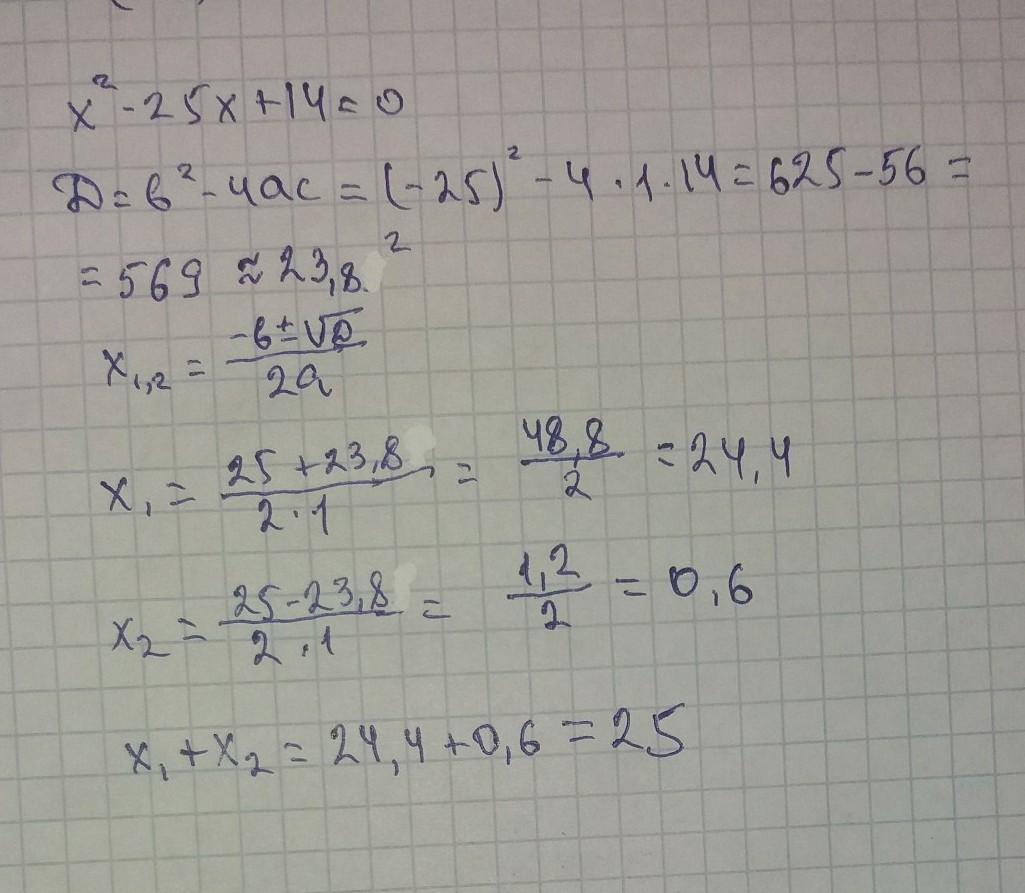 x² - 25x + 14 = 0
D = b² - 4ac = (-25)² - 4 · 1 · 14 = 625 - 56 =
= 569 ≈ 23,8²
x₁,₂ = (-b ± √D) / 2a
x₁ = (25 + 23,8) / (2 · 1) = 48,8 / 2 = 24,4
x₂ = (25 - 23,8) / (2 · 1) = 1,2 / 2 = 0,6
x₁ + x₂ = 24,4 + 0,6 = 25